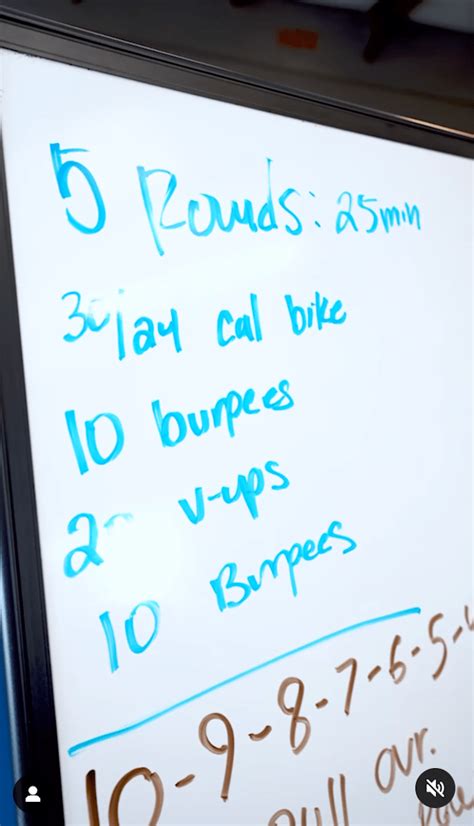 5 Rounds: 25min
30/24 cal bike
10 burpees
v-ups
10 Burpees
10-9-8-7-6-5-
pull our.